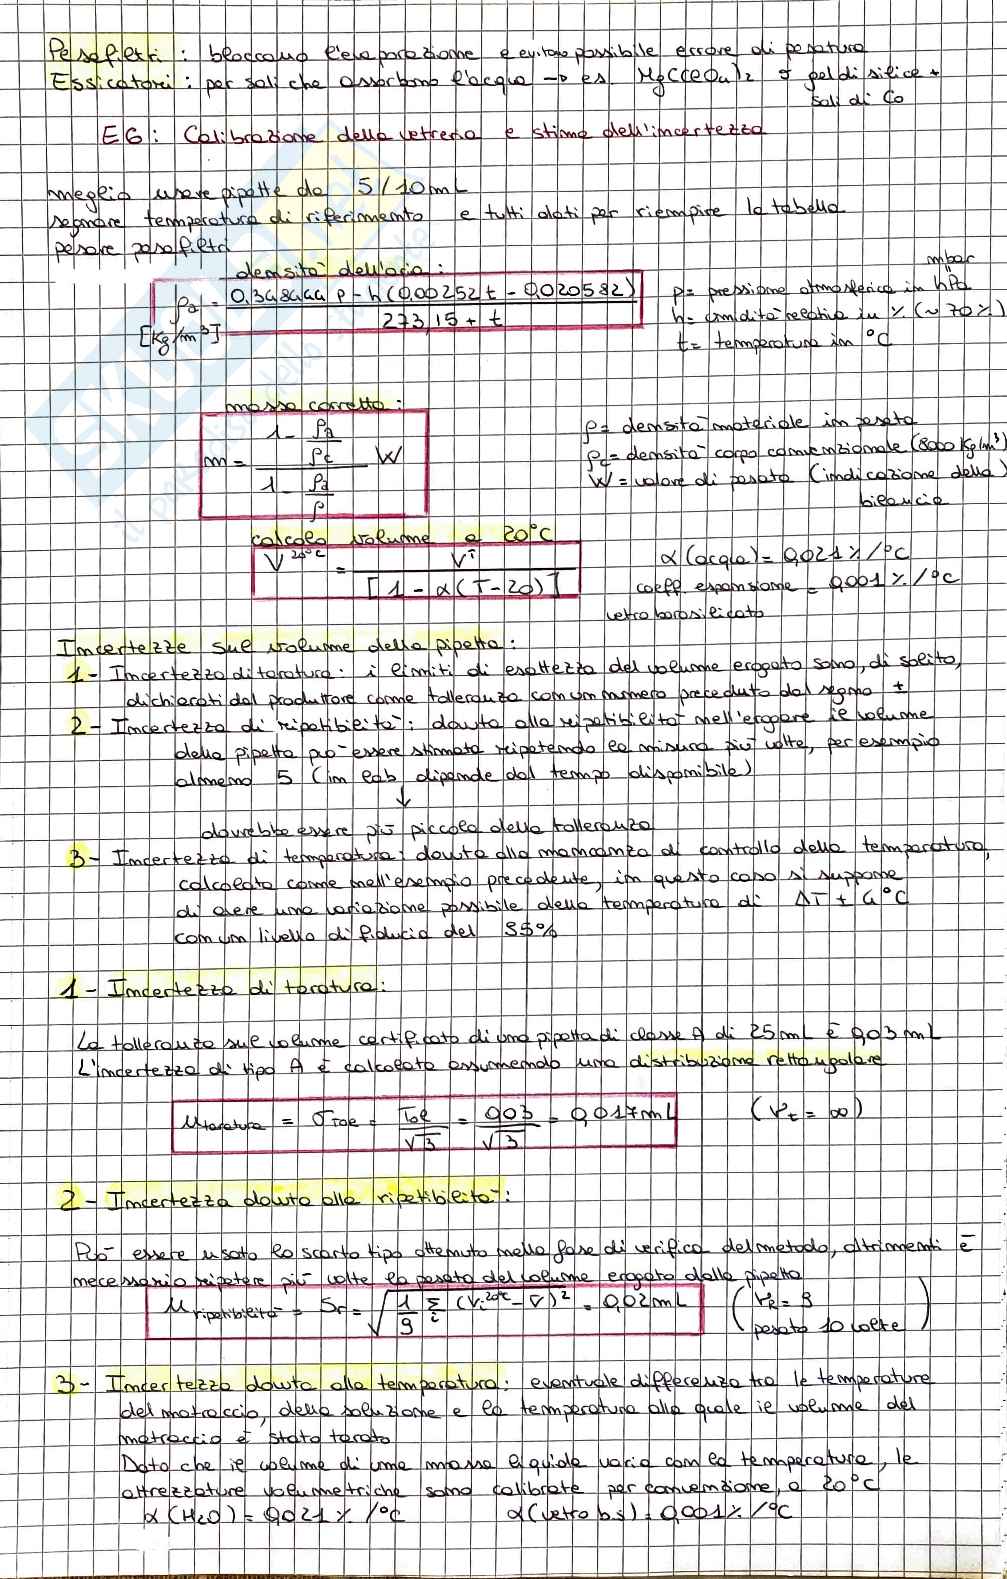 Pesafiltri : bloccano l'evaporazione e evitano possibile errore di pesatura
Essicatori : per sali che assorbono l'acqua → es. Mg(ClO4)2 o gel di silice +
sali di Co
E6 : Calibrazione della vetreria e stima dell'incertezza
meglio usare pipette da 5/10 mL
segnare temperatura di riferimento e tutti dati per riempire la tabella
pesare pesafiltri
densità dell'aria :
ρa = 0,348444 p - h (0,00252 t - 0,020582) / 273,15 + t
[Kg/m³]
mbar
p = pressione atmosferica in hPa
h = umidità relativa in % (~ 70 %)
t = temperatura in °C
massa corretta :
m = (1 - ρa/ρc) / (1 - ρa/ρ) W
ρ = densità materiale in pesata
ρc = densità corpo convenzionale (8000 Kg/m³)
W = valore di pesata (indicazione della
bilancia
calcolo volume a 20°C
V^20°C = V^T / [1 - α(T-20)]
α (acqua) = 0,021 % /°C
coeff. espansione = 0,001 % /°C
vetro borosilicato
Incertezze sul volume della pipetta :
1- Incertezza di taratura : i limiti di esattezza del volume erogato sono, di solito,
dichiarati dal produttore come tolleranza con un numero preceduto dal segno ±
2- Incertezza di ripetibilità : dovuta alla ripetibilità nell'erogare il volume
della pipetta può essere stimata ripetendo la misura più volte, per esempio
almeno 5 (in lab dipende dal tempo disponibile)
↓
dovrebbe essere più piccola della tolleranza
3- Incertezza di temperatura : dovuta alla mancanza di controllo della temperatura,
calcolata come nell'esempio precedente, in questo caso si suppone
di avere una variazione possibile della temperatura di ΔT ± 4°C
con un livello di fiducia del 95%
1- Incertezza di taratura :
La tolleranza sul volume certificato di una pipetta di classe A di 25 mL è 0,03 mL
L'incertezza di tipo A è calcolata assumendo una distribuzione rettangolare
μ taratura = σ Tol = Tol/√3 = 0,03/√3 = 0,017 mL (νt = ∞)
2- Incertezza dovuta alla ripetibilità :
Può essere usato lo scarto tipo ottenuto nella fase di verifica del metodo, altrimenti è
necessario ripetere più volte la pesata del volume erogato dalla pipetta
μ ripetibilità = Sr = √(1/9 Σi (Vi^20°C - V̄)²) = 0,02 mL (νR = 9
pesato 10 volte)
3- Incertezza dovuta alla temperatura : eventuale differenza tra le temperature
del matraccio, della soluzione e la temperatura alla quale il volume del
matraccio è stato tarato
Dato che il volume di una massa liquida varia con la temperatura, le
attrezzature volumetriche sono calibrate per convenzione, a 20°C
α (H2O) = 0,021 % /°C α (vetro b.s) = 0,001 % /°C